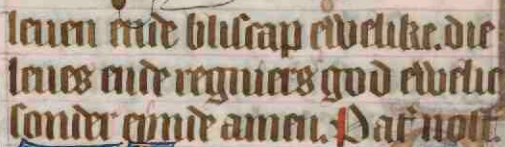 leuen ende bliscap ewelike. die
leues ende regniers god ewelic
sonder eynde amen. Pat̄ nost̄.